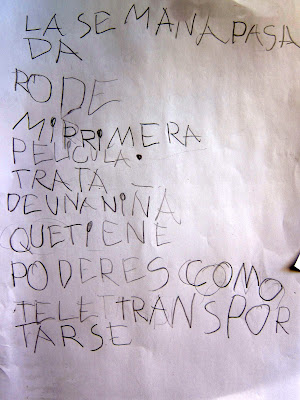 LA SEMANA PASA
DA
RODE
MI PRIMERA
PELICULA.
TRATA
DE UNA NIÑA
QUE TIENE
PODERES CCOMO
TELETTRANSPOR
TARSE